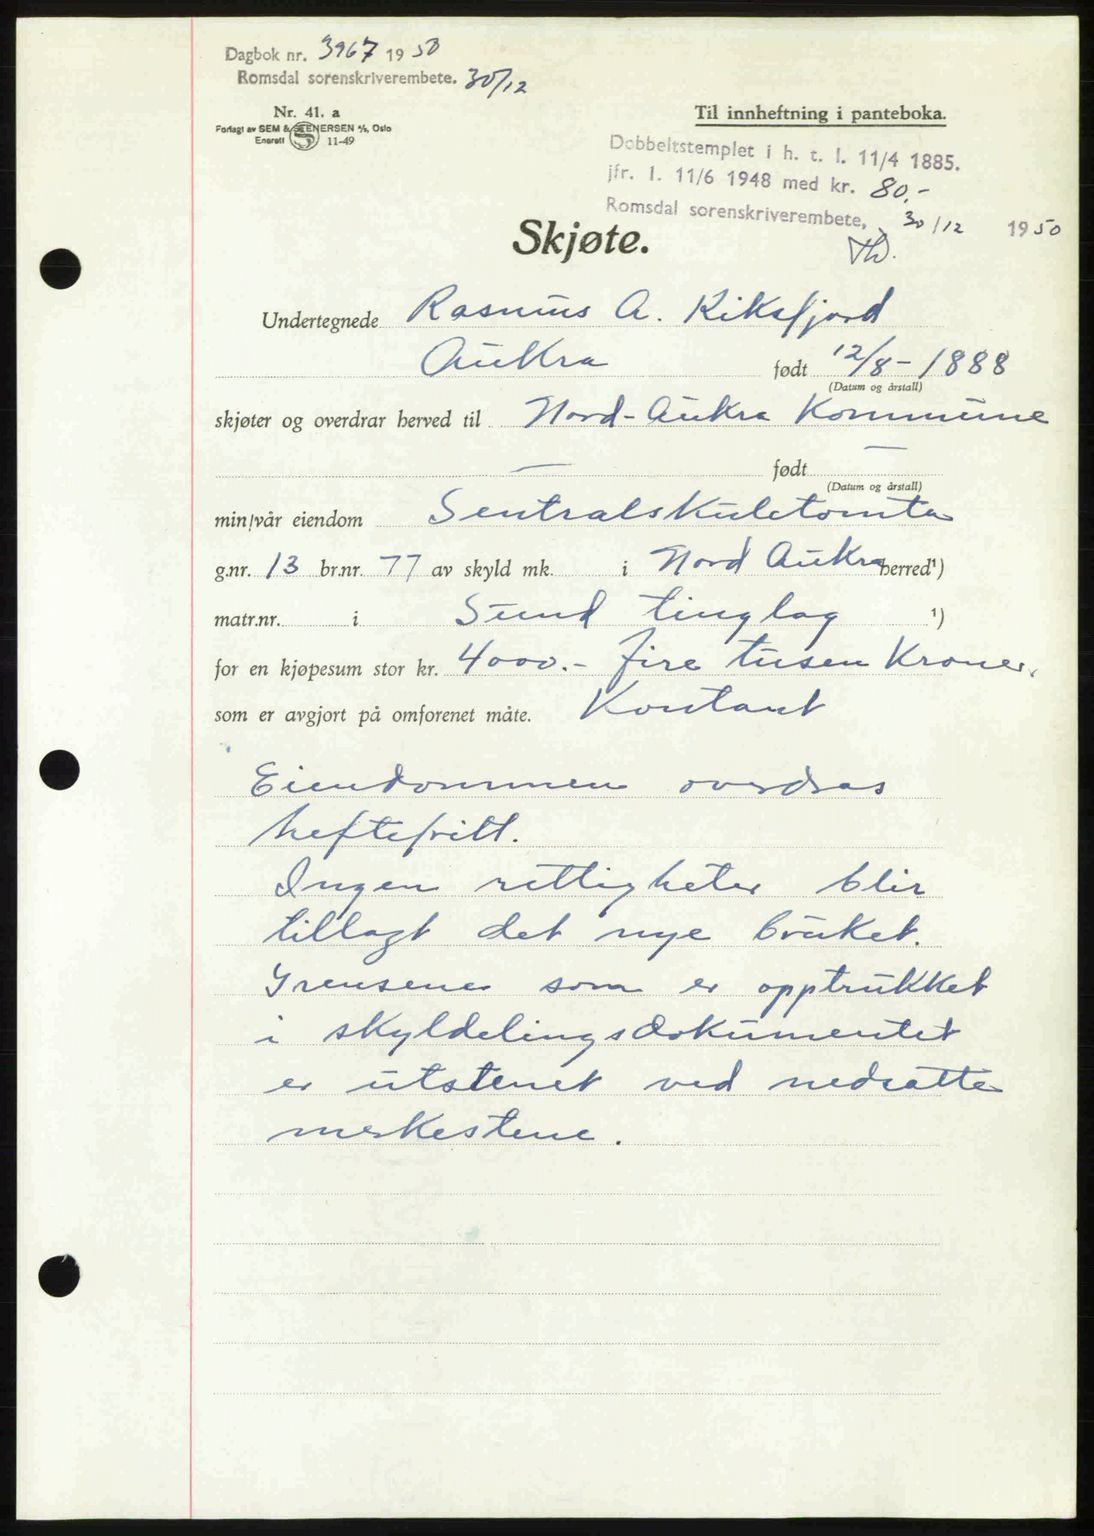 Dagbok nr. 3967 1950
Romsdal sorenskriverembete. 30/12
Nr. 41. a
Forlagt av SEM & STENERSEN A/S, Oslo
Enerett S 11-49
Til innheftning i panteboka.
Dobbeltstemplet i h. t. l. 11/4 1885.
jfr. l. 11/6 1948 med kr. 80,-
Romsdal sorenskriverembete, 30/12 1950
Skjøte.
Undertegnede Rasmus A. Riksfjord
Aukra født 12/8-1888
(Datum og årstall)
skjøter og overdrar herved til Nord-Aukra Kommune
— født —
(Datum og årstall)
min/vår eiendom Sentralskuletomta
g.nr. 13 br.nr. 77 av skyld mk. i Nord Aukra herred¹)
matr.nr. i Sund tinglag ¹)
for en kjøpesum stor kr. 4000.- fire tusen Kroner.
som er avgjort på omforenet måte. Kontant
Eiendommen overdras
heftefritt.
Ingen rettigheter blir
tillagt det nye bruket.
Grensene som er opptrukket
i skyldelingsdokumentet
er utstenet ved nedsatte
merkestene.